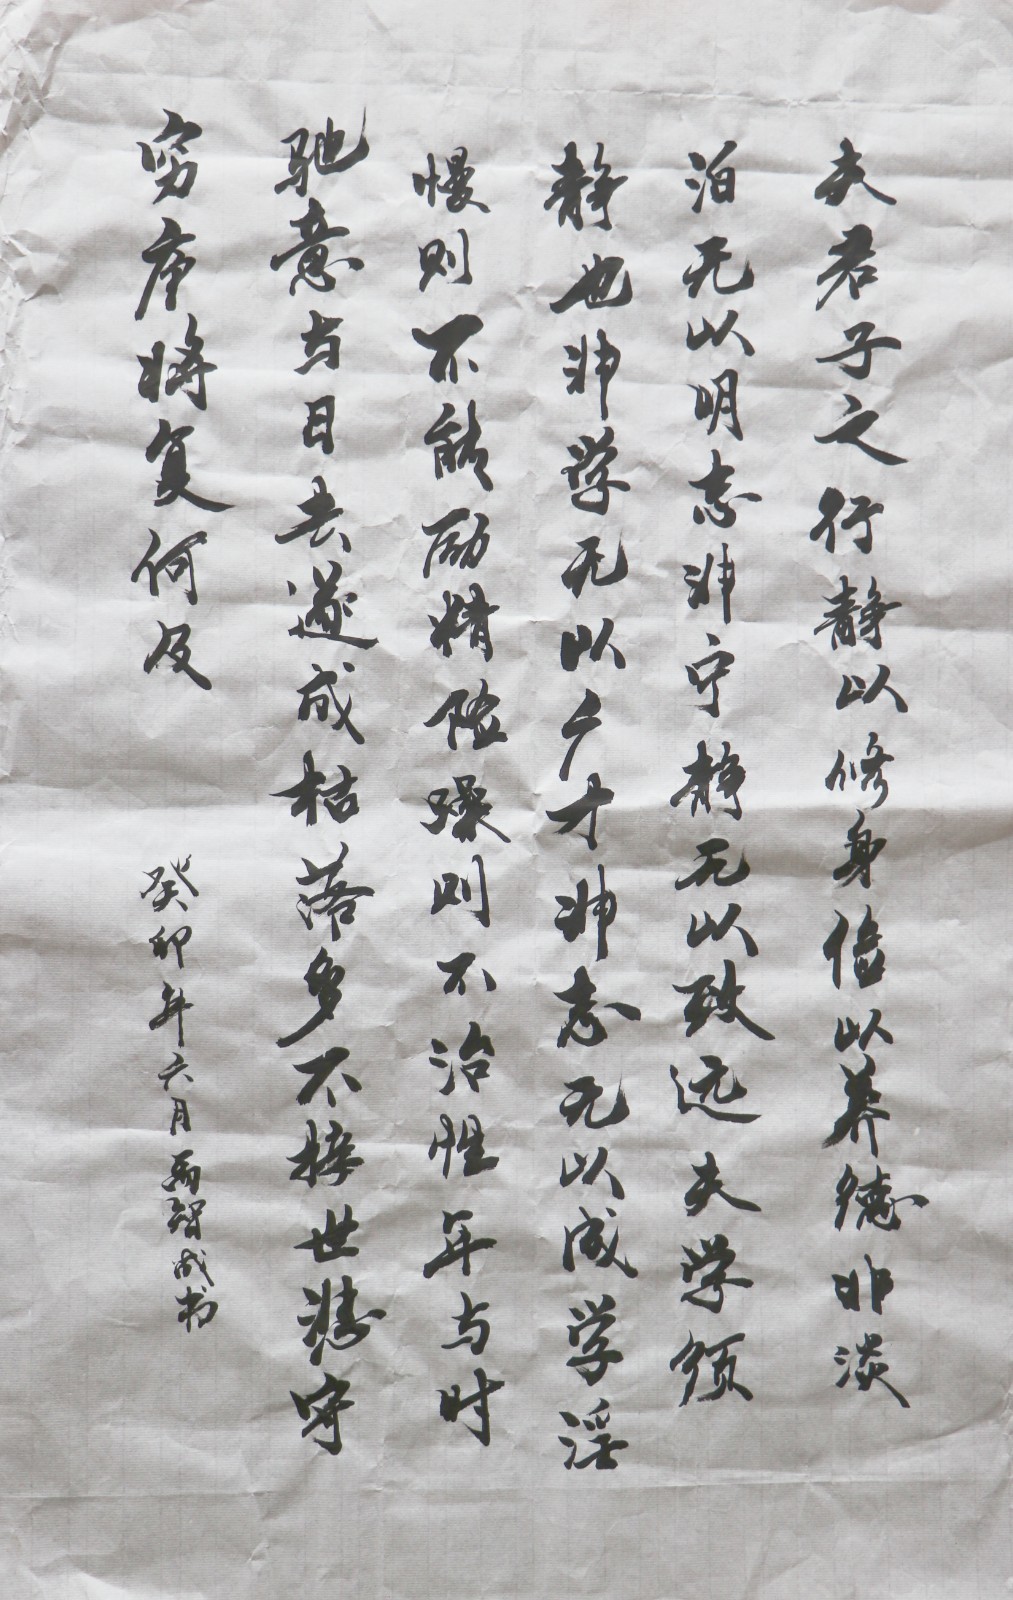 夫君子之行静以修身俭以养德非淡
泊无以明志非宁静无以致远夫学须
静也非学无以广才非志无以成学淫
慢则不能励精险躁则不治性年与时
驰意与日去遂成枯落多不接世悲守
穷庐将复何及
癸卯年六月 智成书